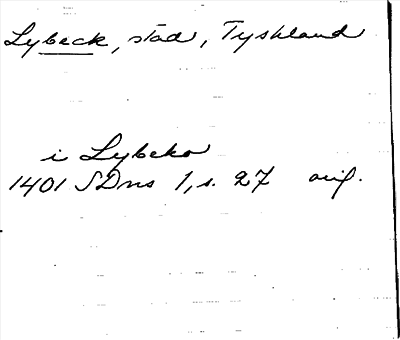 Lybeck, stad, Tyskland
i Lybeko
1401 SDns 1, s. 27 orig.